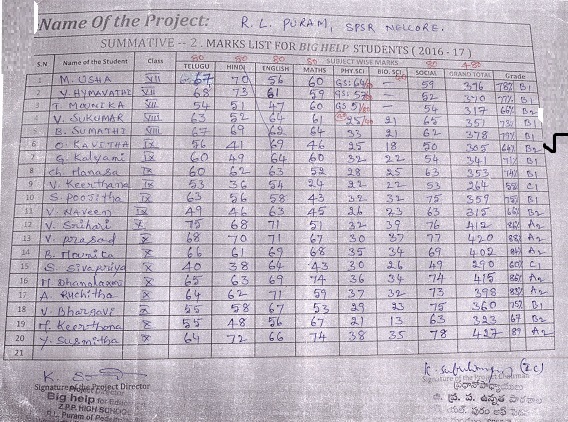 Name Of the Project: R. L. PURAM, SPSR NELLORE.
SUMMATIVE -- 2 . MARKS LIST FOR BIG HELP STUDENTS ( 2016 - 17 )
80 80 80 80 80 480
S.N Name of the Student Class TELUGU HINDI ENGLISH MATHS SUBJECT WISE MARKS PHY.SCI BIO. SCI SOCIAL GRAND TOTAL Grade
1 M. USHA VII 67 70 56 60 GS: 64 - 59 376 78% B1
2 Y. HYMAVATHI VII 68 73 61 59 GS: 57 - 52 370 77% B1
3 T. MOUNIKA VII 54 51 47 60 GS 51 - 54 317 66% B2
4 V. SUKUMAR VIII 63 52 64 61 25 21 65 351 73% B1
5 B. SUMATHI VIII 67 69 62 64 33 21 62 378 79% B1
6 O. KAVITHA IX 56 41 69 46 25 18 50 305 64% B2
7 G. Kalyani IX 60 49 64 60 32 22 54 341 71% B1
8 Ch. Manasa IX 60 62 63 52 28 25 63 353 74% B1
9 V. Keerthana IX 53 36 54 24 22 22 53 264 55% C1
10 S. poojitha IX 63 56 58 43 32 32 75 359 75% B1
11 V. NAVeen IX 49 46 63 45 26 23 63 315 66% B2
12 V. Srihari X 75 68 71 51 32 39 76 412 86% A2
13 V. prasad X 68 70 71 67 30 37 77 420 88% A2
14 B. Mounica X 66 61 69 68 35 34 69 402 84% A2
15 S. Sivapriya X 40 38 64 43 30 26 49 290 60% C1
16 M. Dhanalaxmi X 65 63 69 74 36 34 74 415 86% A2
17 A. Ruchitha X 64 62 71 59 37 32 73 398 83% A2
18 V. Bhargavi X 55 58 67 53 29 23 75 360 75% B1
19 M. Keerthana X 55 48 56 67 21 13 63 323 67 B2
20 Y. Susmitha X 64 72 66 74 38 35 78 427 89 A2
21
Signature of the Project Director
Big help for
Z.P.P. HIGH SCHOOL
Puram
Signature of the
ప్రధానోపాధ్యాయులు
ఉన్నత పాఠశాల